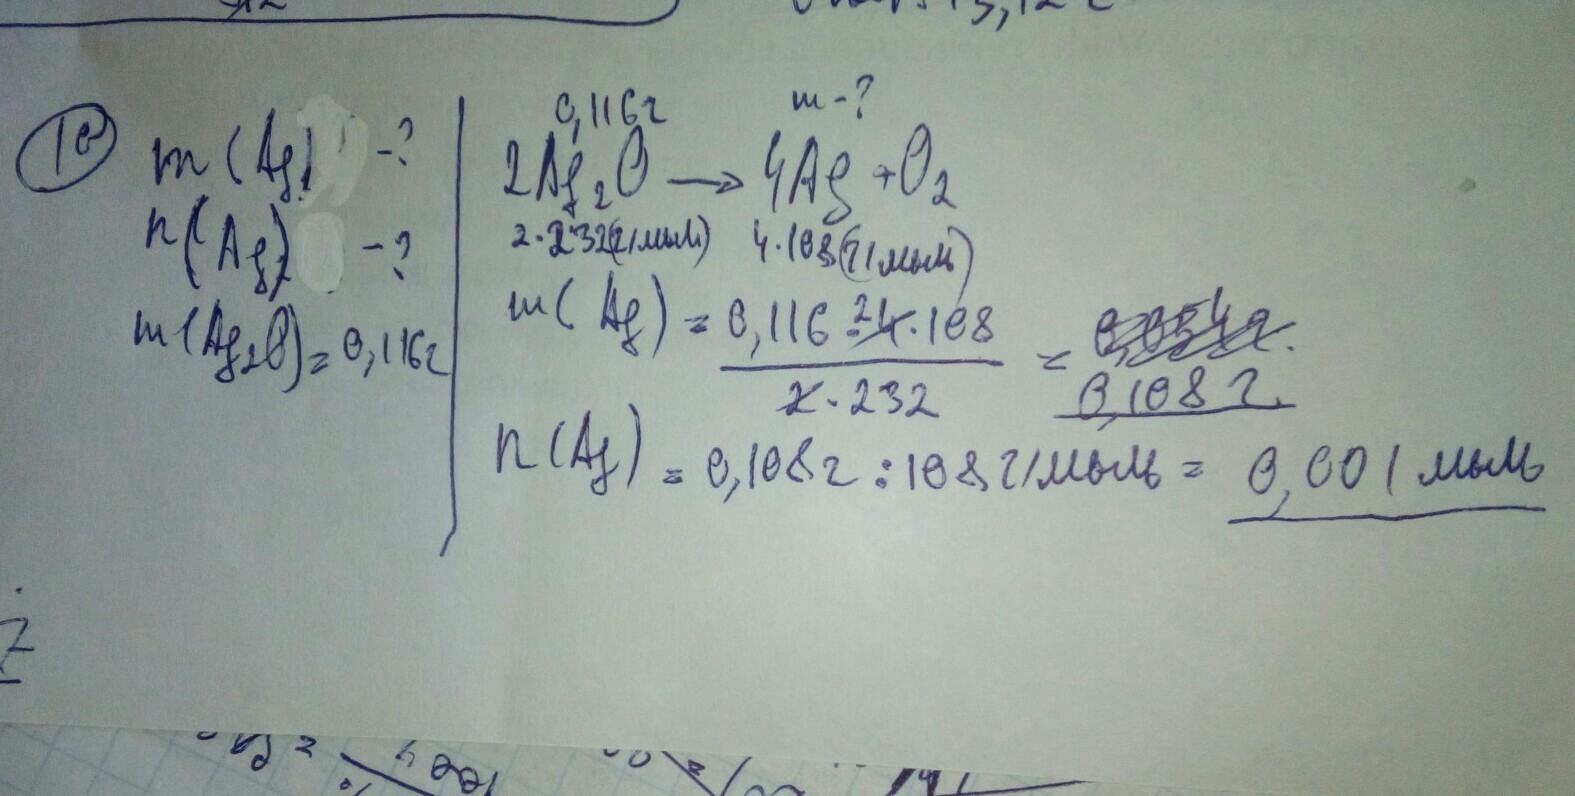 10
m(Ag) -?
n(Ag) -?
m(Ag₂O) = 0,116г
0,116г m-?
2Ag₂O → 4Ag + O₂
2·232(г/моль) 4·108(г/моль)
m(Ag) = 0,116·4·108 / 2·232 = 0,108 г.
n(Ag) = 0,108г : 108г/моль = 0,001 моль